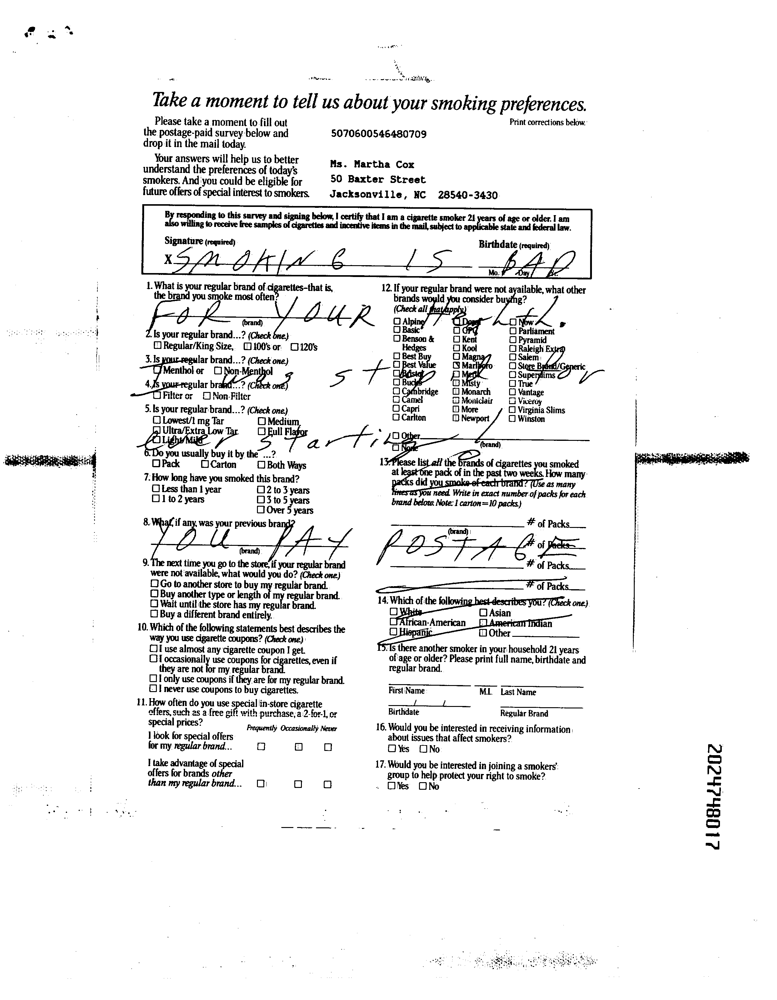 Take a moment to tell us about your smoking preferences.
Please take a moment to fill out
the postage-paid survey below and
drop it in the mail today.
Your answers will help us to better
understand the preferences of today's
smokers. And you could be eligible for
future offers of special interest to smokers.
Print corrections below.
5070600546480709
Ms. Martha Cox
50 Baxter Street
Jacksonville, NC 28540-3430
By responding to this survey and signing below, I certify that I am a cigarette smoker 21 years of age or older. I am
also willing to receive free samples of cigarettes and incentive items in the mail, subject to applicable state and federal law.
Signature (required)
Birthdate (required)
X SMOKING IS BAD
Mo. Day
1. What is your regular brand of cigarettes–that is,
the brand you smoke most often?
FOR YOUR
(brand)
2. Is your regular brand...? (Check one.)
Regular/King Size, 100's or 120's
3. Is your regular brand...? (Check one.)
Menthol or Non-Menthol
4. Is your regular brand...? (Check one.)
Filter or Non-Filter
5. Is your regular brand...? (Check one.)
Lowest/1 mg Tar
Medium
Ultra/Extra Low Tar
Full Flavor
Light/Mild
6. Do you usually buy it by the ...?
Pack Carton Both Ways
7. How long have you smoked this brand?
Less than 1 year
2 to 3 years
1 to 2 years
3 to 5 years
Over 5 years
8. What, if any, was your previous brand?
YOU PAY
(brand)
9. The next time you go to the store, if your regular brand
were not available, what would you do? (Check one.)
Go to another store to buy my regular brand.
Buy another type or length of my regular brand.
Wait until the store has my regular brand.
Buy a different brand entirely.
10. Which of the following statements best describes the
way you use cigarette coupons? (Check one.)
I use almost any cigarette coupon I get.
I occasionally use coupons for cigarettes, even if
they are not for my regular brand.
I only use coupons if they are for my regular brand.
I never use coupons to buy cigarettes.
11. How often do you use special in-store cigarette
offers, such as a free gift with purchase, a 2-for-1, or
special prices?
Frequently Occasionally Never
I look for special offers
for my regular brand...
I take advantage of special
offers for brands other
than my regular brand...
12. If your regular brand were not available, what other
brands would you consider buying?
(Check all that apply)
Alpine
Basic
Benson &
Hedges
Best Buy
Best Value
Bristol
Bucks
Cambridge
Camel
Capri
Carlton
Doral
GPC
Kent
Kool
Magna
Marlboro
Merit
Misty
Monarch
Montclair
More
Newport
Now
Parliament
Pyramid
Raleigh Extra
Salem
Store Brand/Generic
Superslims
True
Vantage
Viceroy
Virginia Slims
Winston
Other
(brand)
None
13. Please list all the brands of cigarettes you smoked
at least one pack of in the past two weeks. How many
packs did you smoke of each brand? (Use as many
lines as you need. Write in exact number of packs for each
brand below. Note: 1 carton=10 packs.)
# of Packs
(brand)
POSTAGE
# of Packs
# of Packs
# of Packs
14. Which of the following best describes you? (Check one.)
White
Asian
African-American
American Indian
Hispanic
Other
15. Is there another smoker in your household 21 years
of age or older? Please print full name, birthdate and
regular brand.
First Name M.I. Last Name
/ /
Birthdate Regular Brand
16. Would you be interested in receiving information
about issues that affect smokers?
Yes No
17. Would you be interested in joining a smokers'
group to help protect your right to smoke?
Yes No
2024748017